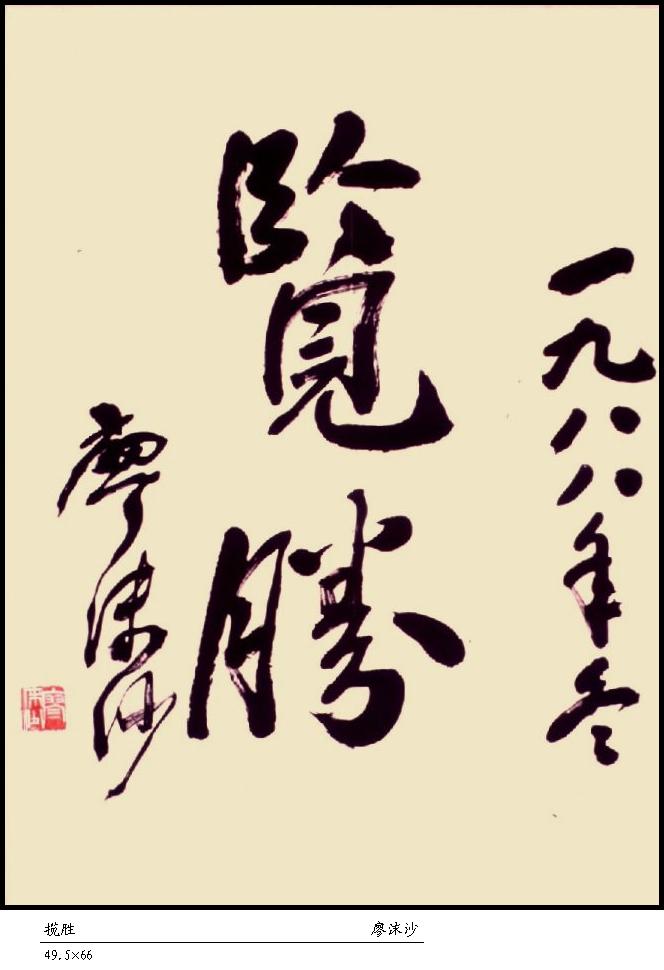 一九八八年冬
覽勝
廖沫沙
揽胜
廖沫沙
49.5×66